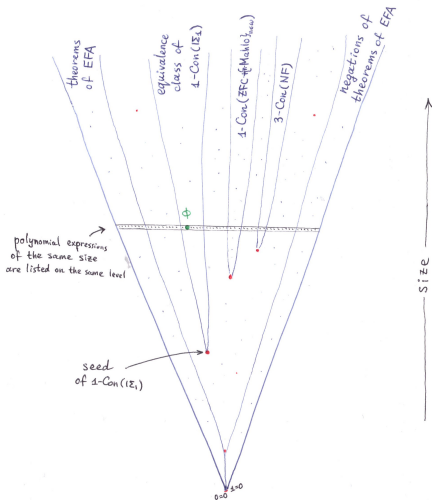 theorems
of EFA
equivalence
class of
1-Con(IΣ₁)
1-Con(ZFC+{Mahlo}
3-Con(NF)
negations of
theorems of EFA
ϕ
polynomial expressions
of the same size
are listed on the same level
size
seed
of 1-Con(IΣ₁)
0=0
1=0